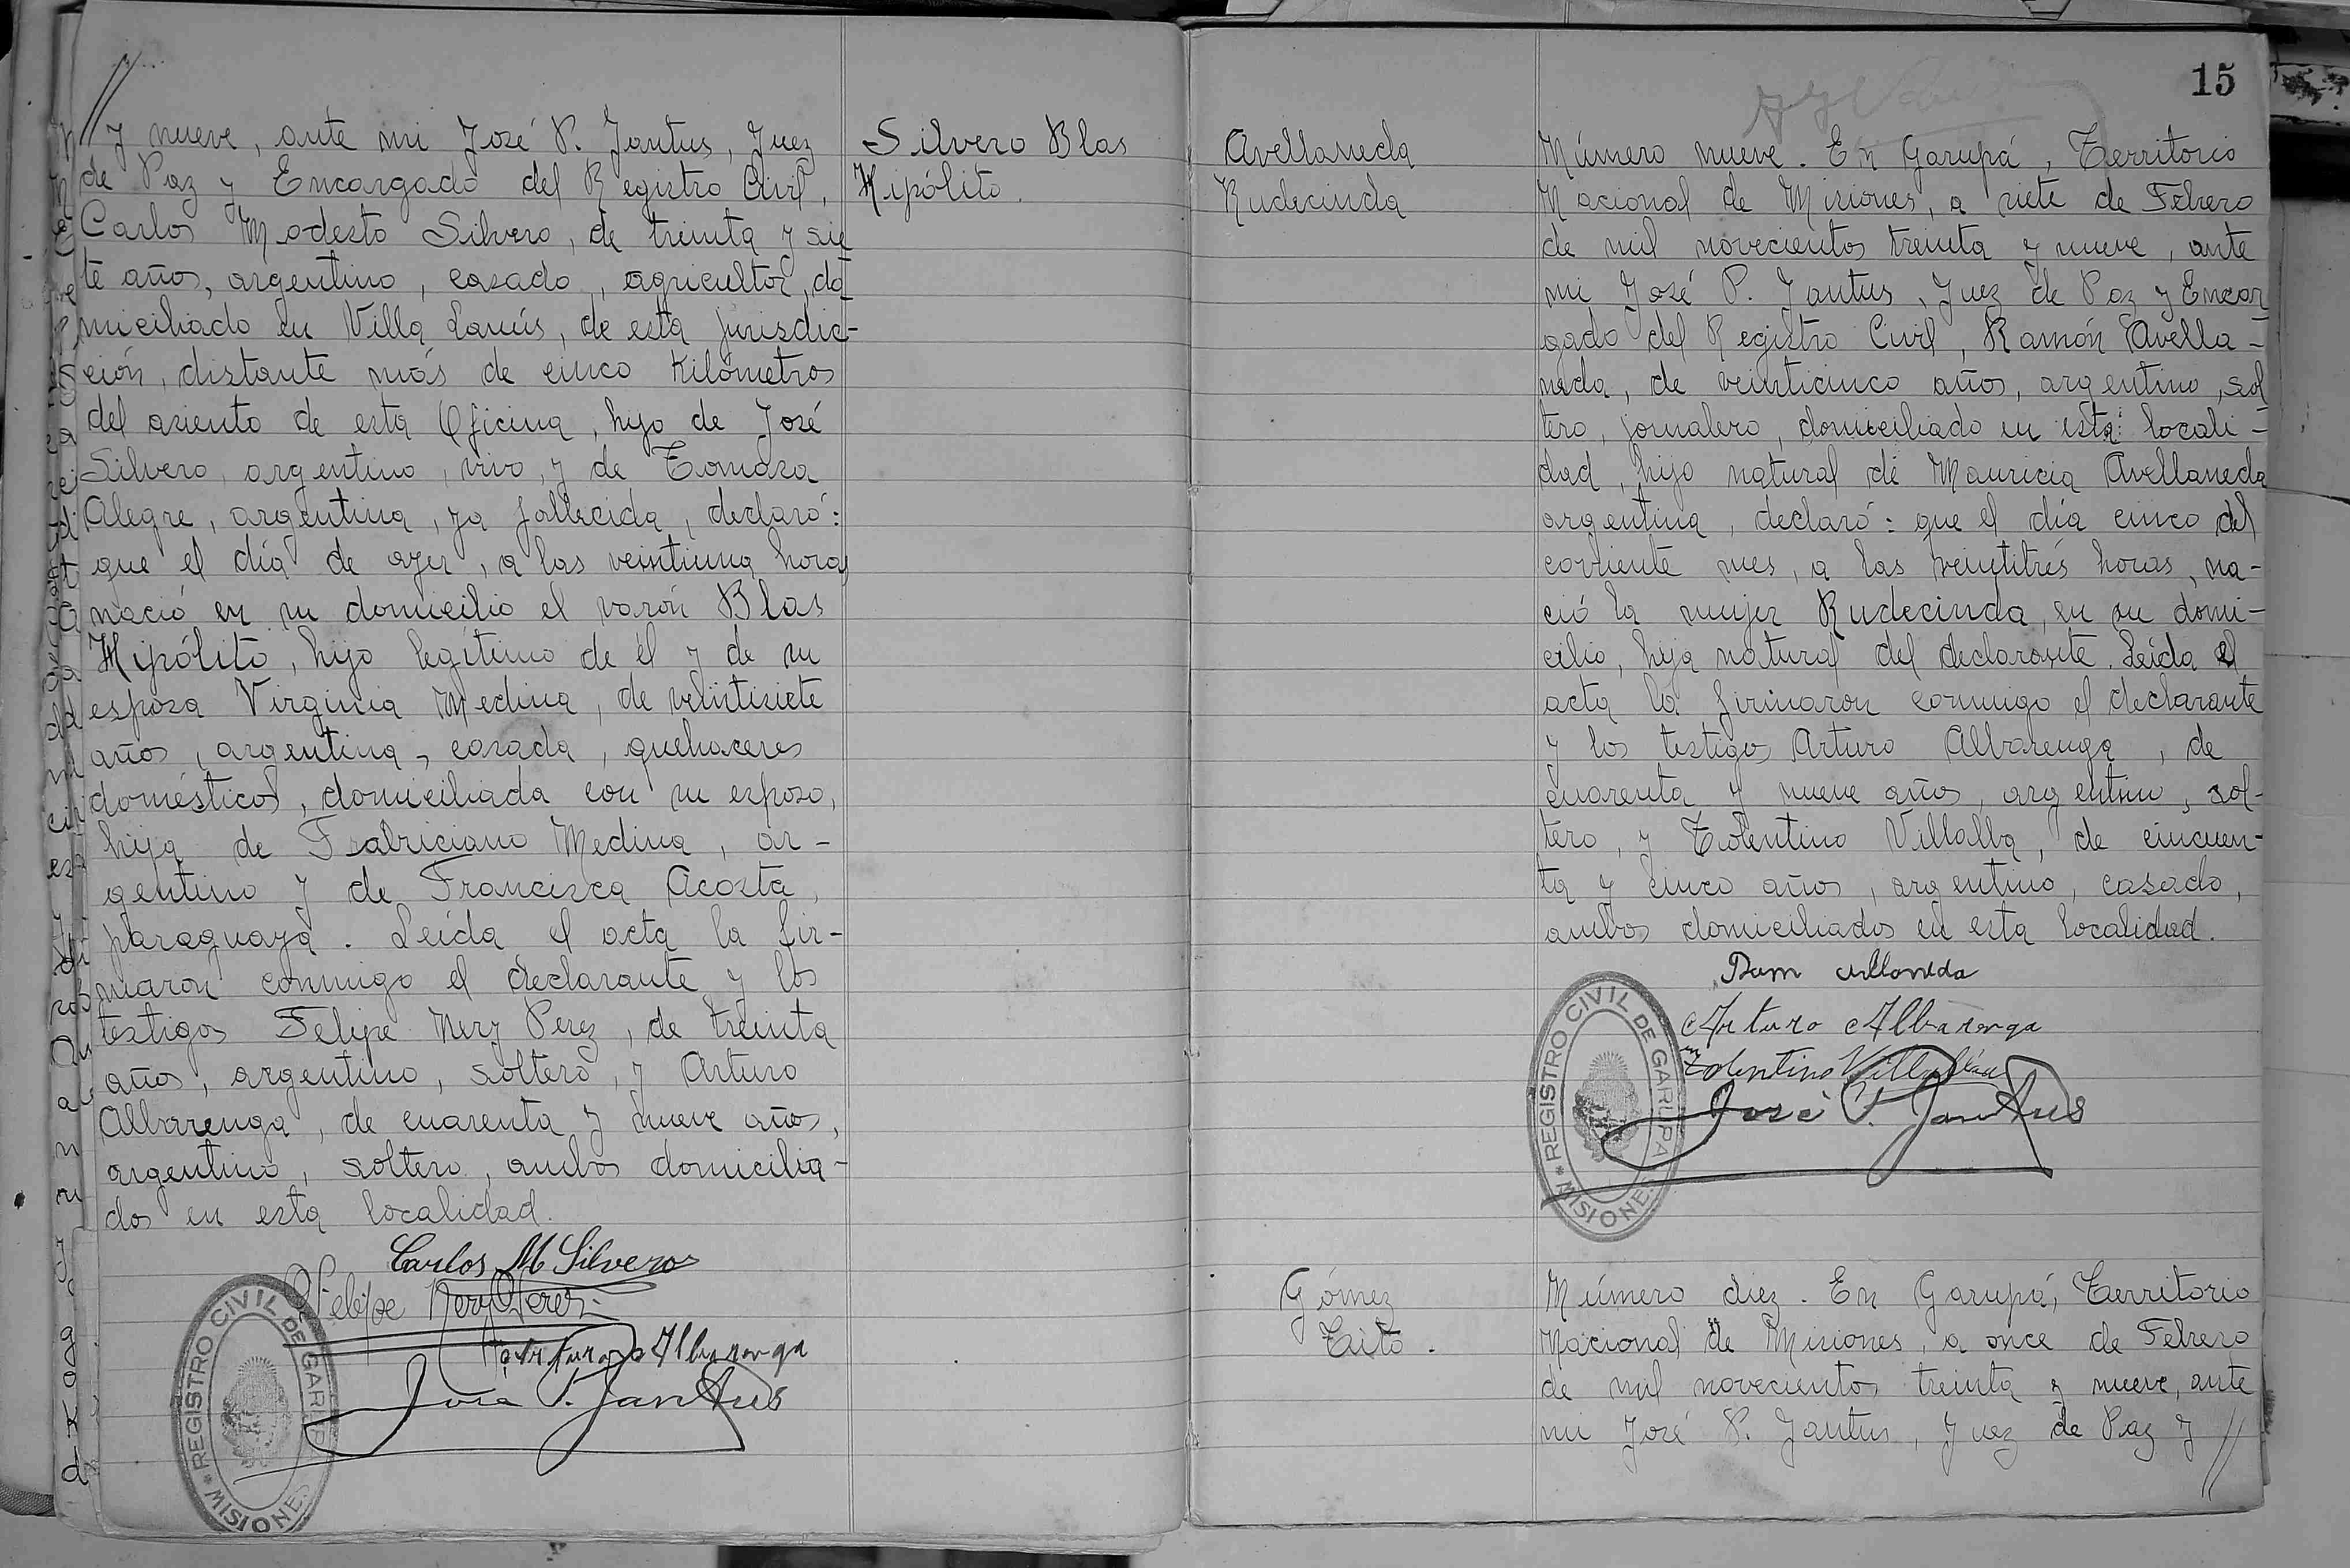 //
y nueve, ante mi José P. Jantus, Juez
de Paz y Encargado del Registro Civil,
Carlos Modesto Silvero, de treinta y sie
te años, argentino, casado, agricultor, do
miciliado en Villa Lanús, de esta jurisdic-
ción, distante más de cinco Kilómetros
del asiento de esta Oficina, hijo de José
Silvero, argentino, vivo, y de Tomasa
Alegre, argentina, ya fallecida, declaró:
que el día de ayer, a las veintiuna horas
nació en su domicilio el varón Blas
Hipólito, hijo legítimo de él y de su
esposa Virginia Medina, de veintisiete
años, argentina, casada, quehaceres
domésticos, domiciliada con su esposo,
hija de Fabriciano Medina, ar-
gentino y de Francisca Acosta,
paraguaya. Leída el acta la fir-
maron conmigo el declarante y los
testigos Felipe Nery Perez, de treinta
años, argentino, soltero, y Arturo
Albarenga, de cuarenta y nueve años,
argentino, soltero, ambos domicilia-
dos en esta localidad.
Carlos M Silvero
Felipe Nery Perez
Arturo Albarenga
José P. Jantus
REGISTRO CIVIL DE GARUPA
* MISIONES
Silvero Blas
Hipólito.
15
Avellaneda
Rudecinda
Número nueve. En Garupá, Territorio
Nacional de Misiones, a siete de Febrero
de mil novecientos treinta y nueve, ante
mi José P. Jantus, Juez de Paz y Encar
gado del Registro Civil, Ramón Avella-
neda, de veinticinco años, argentino, sol
tero, jornalero, domiciliado en esta locali-
dad, hijo natural de Mauricia Avellaneda
argentina, declaró: que el día cinco del
corriente mes, a las veintitrés horas, na-
ció la mujer Rudecinda, en su domi-
cilio, hija natural del declarante. Leída el
acta la firmaron conmigo el declarante
y los testigos Arturo Albarenga, de
cuarenta y nueve años, argentino, sol-
tero, y Tolentino Villalba, de cincuen-
ta y cinco años, argentino, casado,
ambos domiciliados en esta localidad.
Arturo Albarenga
Tolentino Villalba
José P. Jantus
REGISTRO CIVIL DE GARUPA
* MISIONES
Gómez
Tito.
Número diez. En Garupá, Territorio
Nacional de Misiones, a once de Febrero
de mil novecientos treinta y nueve, ante
mi José P. Jantus, Juez de Paz y //